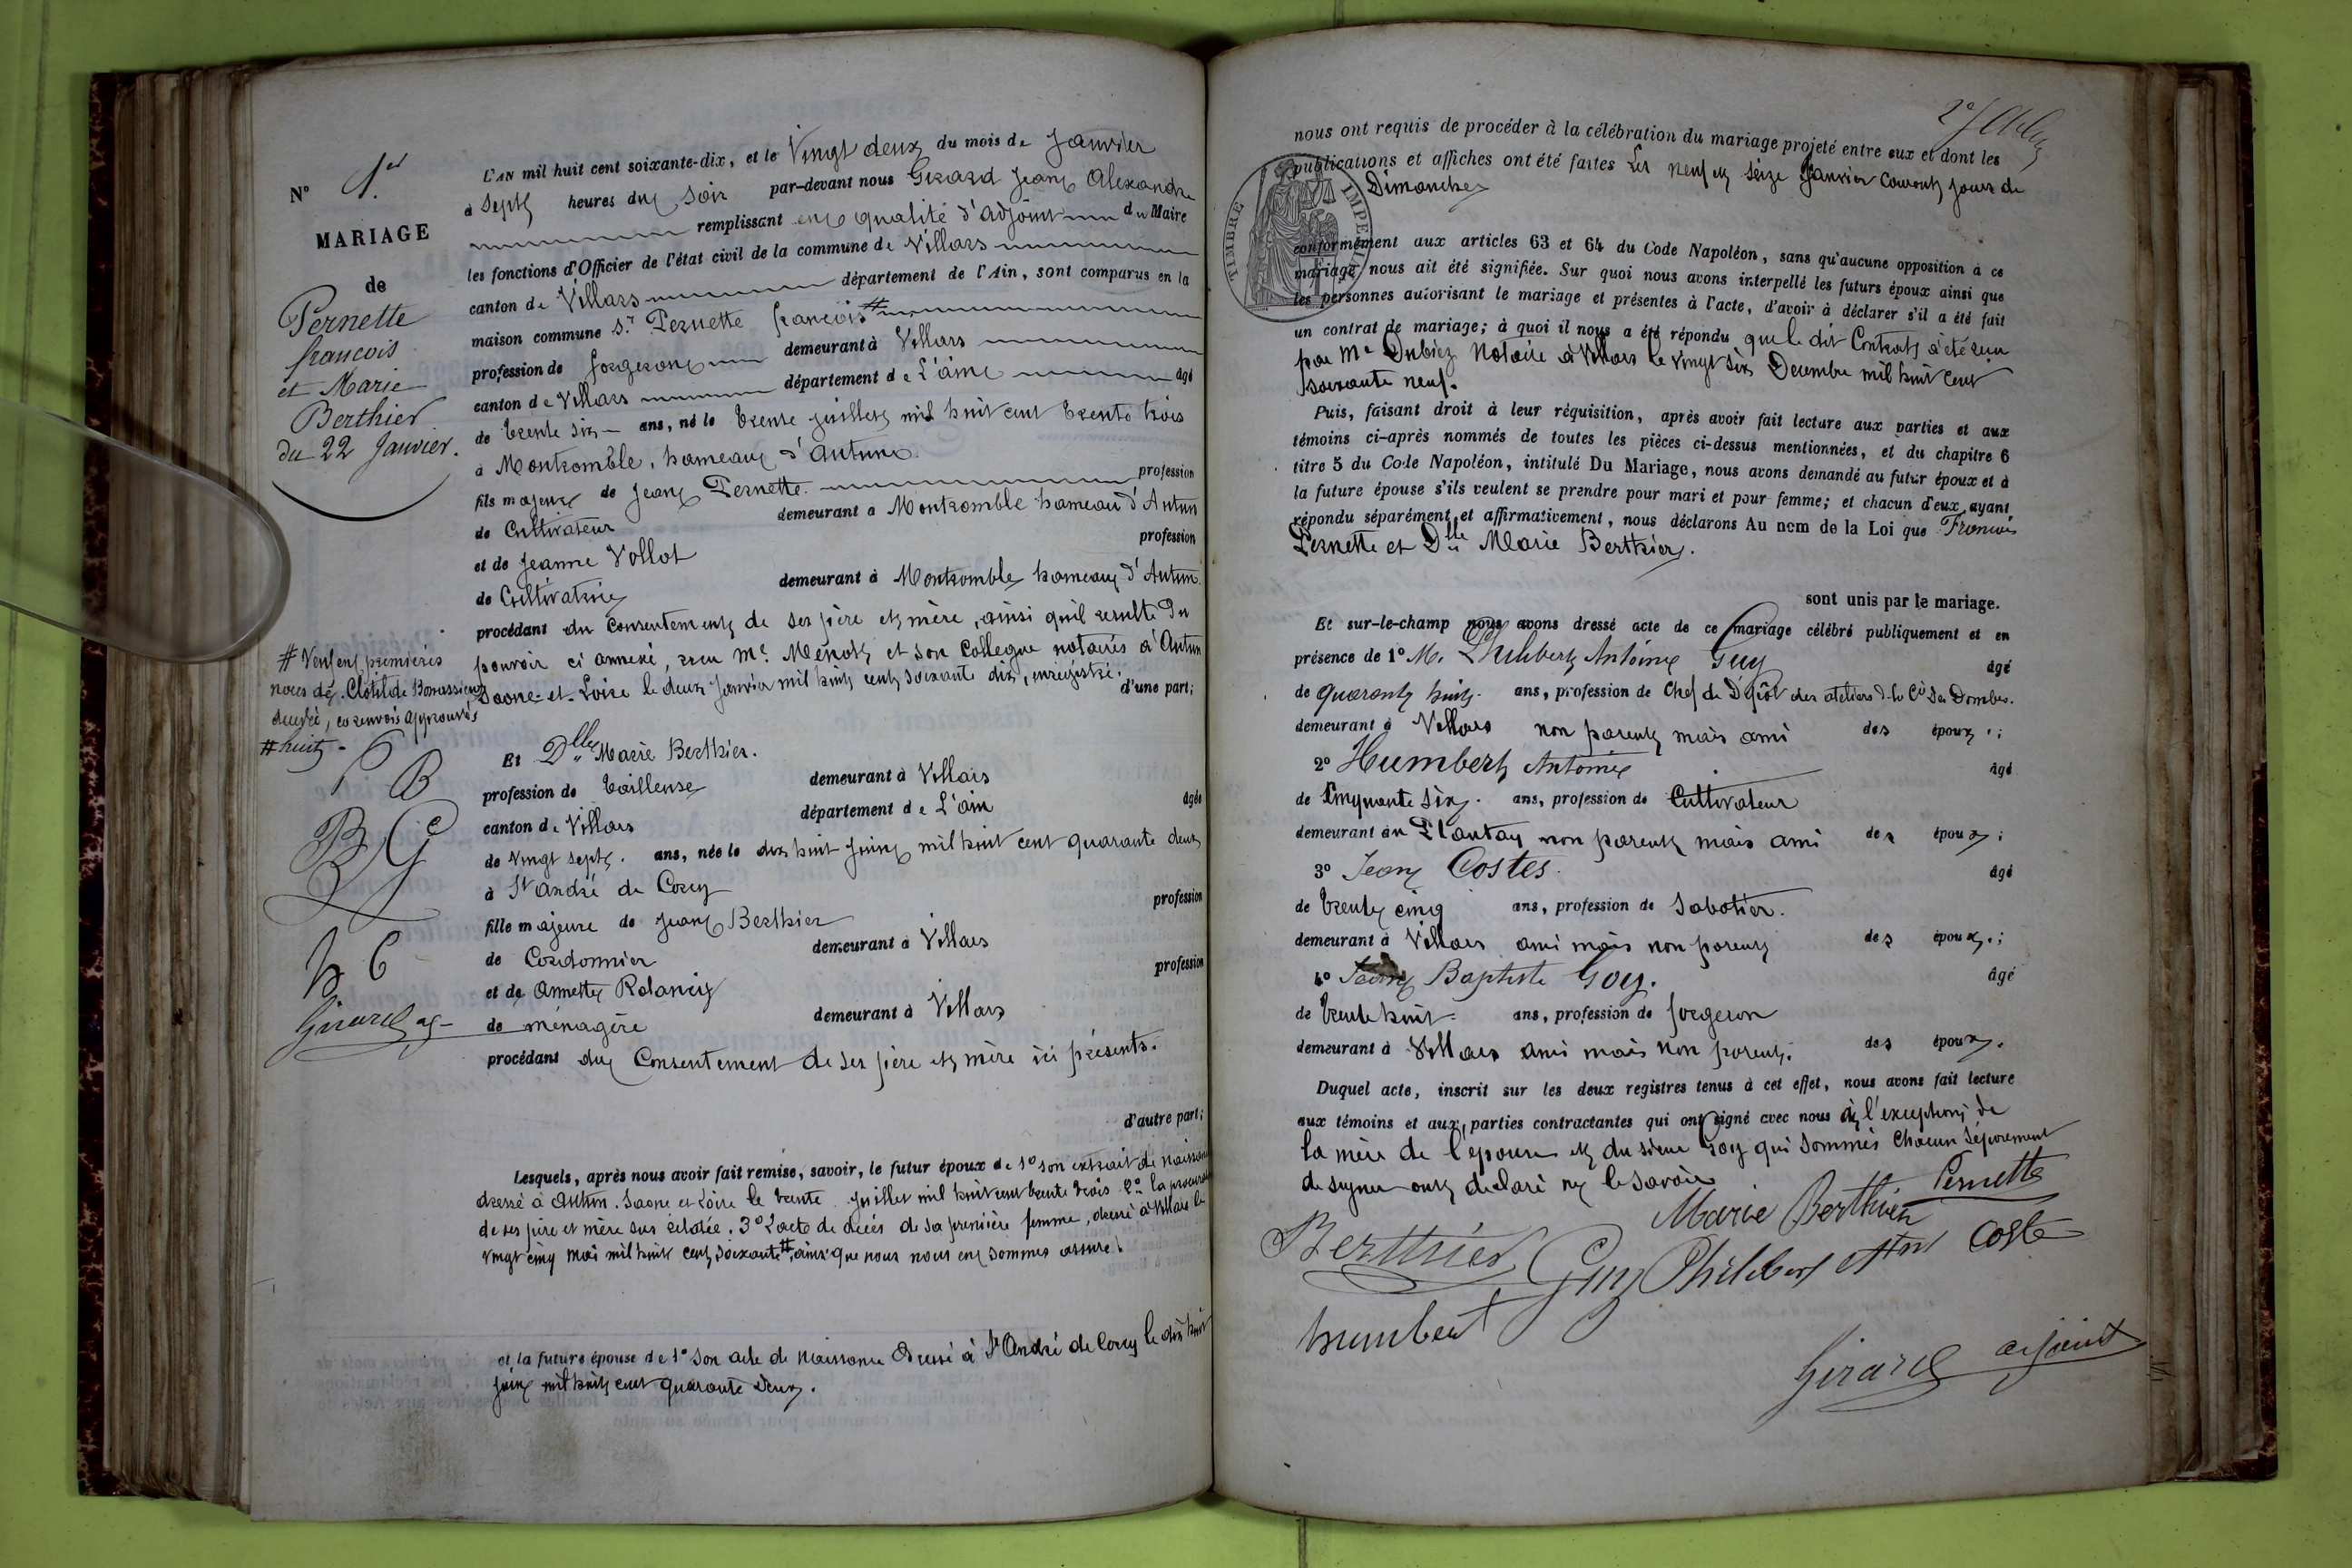 N° 1er
MARIAGE
de
Pernette
francois
et Marie
Berthier
du 22 Janvier.
# Veuf en premières
noces de Clotilde
decedée, en renvois approuvés
# huit
P B
B G
h C
Girard
L'AN mil huit cent soixante-dix, et le Vingt deux du mois de Janvier
à Sept heures du Soir par-devant nous Girard Jean Alexandre
remplissant en qualité d'adjoint du Maire
les fonctions d'Officier de l'état civil de la commune de Villars
canton de Villars département de l'Ain, sont comparus en la
maison commune Sr Pernette françois #
profession de forgeron demeurant à Villars
canton de Villars département de L'ain âgé
de trente six ans, né le trente juillet mil huit cent trente trois
à Montromble, hameau d'Autun
fils majeur de Jean Pernette profession
de Cultivateur demeurant à Montromble hameau d'Autun
et de Jeanne Vollot profession
de Cultivatrice demeurant à Montromble hameau d'Autun
procédant du Consentement de ses père et mère, ainsi qu'il resulte du
pouvoir ci annexé, reçu Me et son Collegue notaires à Autun
Saone-et-Loire le deux Janvier mil huit cent soixante dix, enregistré. d'une part;
Et Dlle Marie Berthier.
profession de tailleuse demeurant à Villars
canton de Villars département de L'ain âgée
de Vingt sept. ans, née le dix huit Juin mil huit cent quarante deux
à St andré de Corcy
fille majeure de Jean Berthier profession
de Cordonnier demeurant à Villars
et de Annette profession
de ménagère demeurant à Villars
procédant du Consentement de ses père et mère ici présents.
d'autre part;
Lesquels, après nous avoir fait remise, savoir, le futur époux de 1° son extrait de naissance
dressé à Autun. Saone et Loire le trente Juillet mil huit cent trente trois 2° la procuration
de ses père et mère sus relatée. 3° l'acte de décès de sa première femme, dressé à Villars le
vingt cinq mai mil huit cent soixante #, ainsi que nous nous en sommes assuré.
et la future épouse de 1° Son acte de naissance dressé à St André de Corcy le dix huit
Juin mil huit cent quarante deux.
nous ont requis de procéder à la célébration du mariage projeté entre eux et dont les
publications et affiches ont été faites Les neuf et seize Janvier courant jours de
Dimanche
TIMBRE IMPERIAL
conformément aux articles 63 et 64 du Code Napoléon, sans qu'aucune opposition à ce
mariage nous ait été signifiée. Sur quoi nous avons interpellé les futurs époux ainsi que
les personnes autorisant le mariage et présentes à l'acte, d'avoir à déclarer s'il a été fait
un contrat de mariage; à quoi il nous a été répondu que le dit Contrat a été reçu
par Me Dubiez Notaire à Villars le vingt six Decembre mil huit cent
soixante neuf.
Puis, faisant droit à leur réquisition, après avoir fait lecture aux parties et aux
témoins ci-après nommés de toutes les pièces ci-dessus mentionnées, et du chapitre 6
titre 5 du Code Napoléon, intitulé Du Mariage, nous avons demandé au futur époux et à
la future épouse s'ils veulent se prendre pour mari et pour femme; et chacun d'eux ayant
répondu séparément et affirmativement, nous déclarons Au nom de la Loi que Francois
Pernette et Dlle Marie Berthier.
sont unis par le mariage.
Et sur-le-champ nous avons dressé acte de ce mariage célébré publiquement et en
présence de 1° M. Philibert Antoine Guy âgé
de quarante huit. ans, profession de Chef de Dépôt des ateliers de la Cie des Dombes.
demeurant à Villars non parent mais ami des époux;
2° Humbert Antoine âgé
de Cinquante Six. ans, profession de Cultivateur
demeurant au Plantay non parent mais ami des époux;
3° Jean Costes. âgé
de trente cinq ans, profession de Sabotier.
demeurant à Villars ami mais non parent des époux;
4° Jean Baptiste Goy. âgé
de trente huit ans, profession de forgeron
demeurant à Villars ami mais non parent. des époux.
Duquel acte, inscrit sur les deux registres tenus à cet effet, nous avons fait lecture
aux témoins et aux parties contractantes qui ont signé avec nous à l'exception de
la mère de l'épouse et du sieur Goy qui sommés chacun séparement
de signer ont declaré ne le savoir
Marie Berthier Pernette
Berthier Guy Philibert Ant Coste
humbert
Girard adjoint